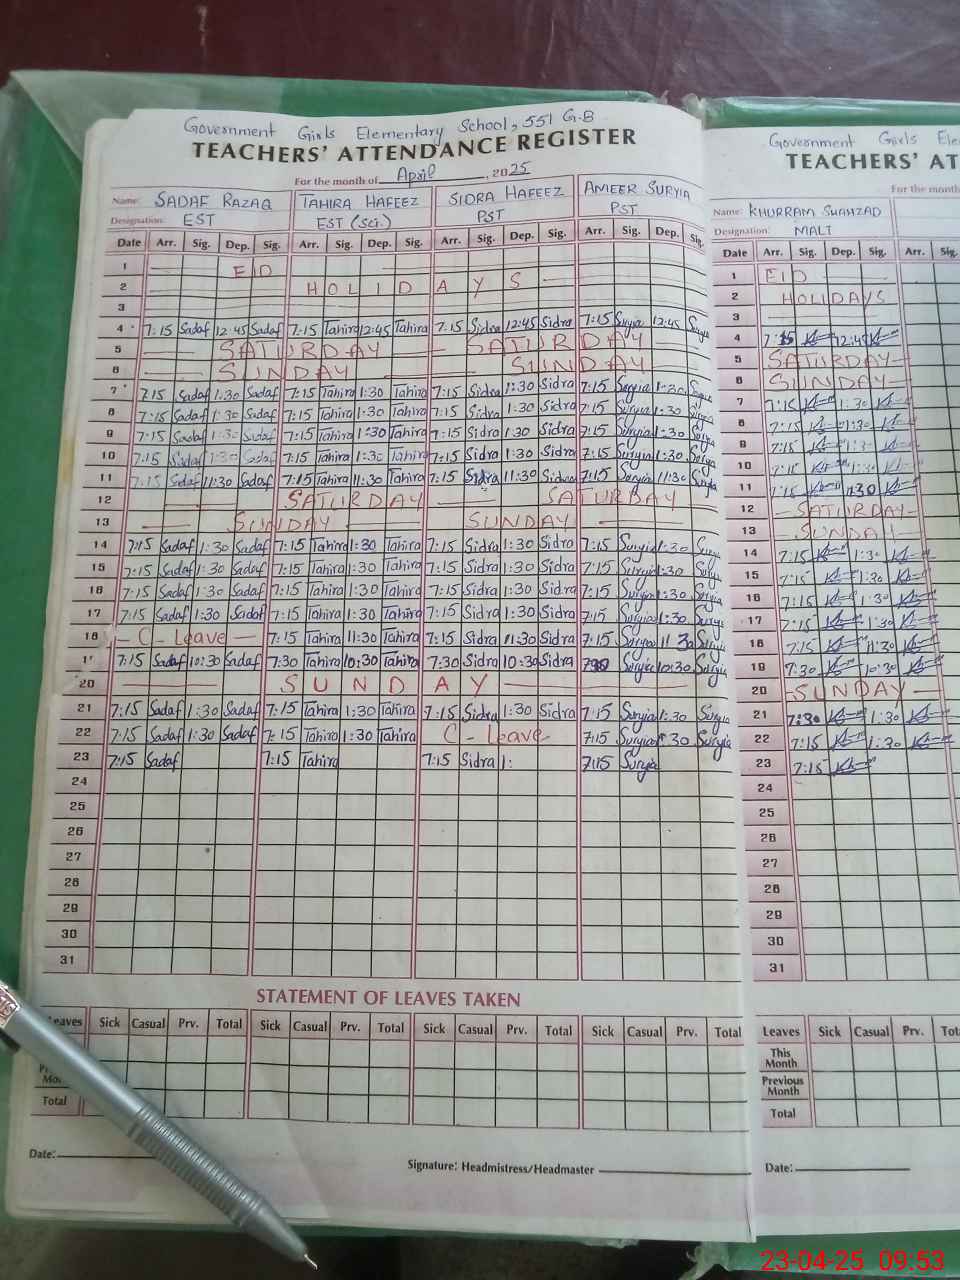 Government Girls Elementary School, 551 G.B
TEACHERS' ATTENDANCE REGISTER
For the month of April, 2025
Name: SADAF RAZAQ TAHIRA HAFEEZ SIDRA HAFEEZ AMEER SURYIA
Designation: EST EST (Sci.) PST PST
Date Arr. Sig. Dep. Sig. Arr. Sig. Dep. Sig. Arr. Sig. Dep. Sig. Arr. Sig. Dep. Sig.
1 EID
2 HOLIDAYS
3
4 7:15 Sadaf 12:45 Sadaf 7:15 Tahira 12:45 Tahira 7:15 Sidra 12:45 Sidra 7:15 Suryia 12:45 Suryia
5 SATURDAY SATURDAY
6 SUNDAY SUNDAY
7 7:15 Sadaf 1:30 Sadaf 7:15 Tahira 1:30 Tahira 7:15 Sidra 1:30 Sidra 7:15 Suryia 1:30 Suryia
8 7:15 Sadaf 1:30 Sadaf 7:15 Tahira 1:30 Tahira 7:15 Sidra 1:30 Sidra 7:15 Suryia 1:30 Suryia
9 7:15 Sadaf 1:30 Sadaf 7:15 Tahira 1:30 Tahira 7:15 Sidra 1:30 Sidra 7:15 Suryia 1:30 Suryia
10 7:15 Sadaf 1:30 Sadaf 7:15 Tahira 1:30 Tahira 7:15 Sidra 1:30 Sidra 7:15 Suryia 1:30 Suryia
11 7:15 Sadaf 11:30 Sadaf 7:15 Tahira 11:30 Tahira 7:15 Sidra 11:30 Sidra 7:15 Suryia 11:30 Suryia
12 SATURDAY SATURDAY
13 SUNDAY SUNDAY
14 7:15 Sadaf 1:30 Sadaf 7:15 Tahira 1:30 Tahira 7:15 Sidra 1:30 Sidra 7:15 Suryia 1:30 Suryia
15 7:15 Sadaf 1:30 Sadaf 7:15 Tahira 1:30 Tahira 7:15 Sidra 1:30 Sidra 7:15 Suryia 1:30 Suryia
16 7:15 Sadaf 1:30 Sadaf 7:15 Tahira 1:30 Tahira 7:15 Sidra 1:30 Sidra 7:15 Suryia 1:30 Suryia
17 7:15 Sadaf 1:30 Sadaf 7:15 Tahira 1:30 Tahira 7:15 Sidra 1:30 Sidra 7:15 Suryia 1:30 Suryia
18 C-Leave 7:15 Tahira 11:30 Tahira 7:15 Sidra 11:30 Sidra 7:15 Suryia 11:30 Suryia
7:15 Sadaf 10:30 Sadaf 7:30 Tahira 10:30 Tahira 7:30 Sidra 10:30 Sidra Suryia 10:30 Suryia
20 SUNDAY
21 7:15 Sadaf 1:30 Sadaf 7:15 Tahira 1:30 Tahira 7:15 Sidra 1:30 Sidra 7:15 Suryia 1:30 Suryia
22 7:15 Sadaf 1:30 Sadaf 7:15 Tahira 1:30 Tahira C-Leave 7:15 Suryia 1:30 Suryia
23 7:15 Sadaf 7:15 Tahira 7:15 Sidra 1: 7:15 Suryia
24
25
26
27
28
29
30
31
STATEMENT OF LEAVES TAKEN
Leaves Sick Casual Prv. Total Sick Casual Prv. Total Sick Casual Prv. Total Sick Casual Prv. Total
Total
Date:
Signature: Headmistress/Headmaster
Government Girls
TEACHERS'
For the month
Name: KHURRAM SHAHZAD
Designation: MALI
Date Arr. Sig. Dep. Sig. Arr. Sig.
1 EID
2 HOLIDAYS
3
4 7:15 12:45
5 SATURDAY
6 SUNDAY
7 7:15 1:30
8 7:15 1:30
9 7:15 1:30
10 7:15 11:30
11 7:15 11:30
12 SATURDAY
13 SUNDAY
14 7:15 1:30
15 7:15 1:30
16 7:15 1:30
17 7:15 1:30
18 7:15 11:30
19 7:30 10:30
20 SUNDAY
21 7:30 1:30
22 7:15 1:30
23 7:15
24
25
26
27
28
29
30
31
Leaves Sick Casual Prv.
This Month
Previous Month
Total
Date:
23-04-25 09:53